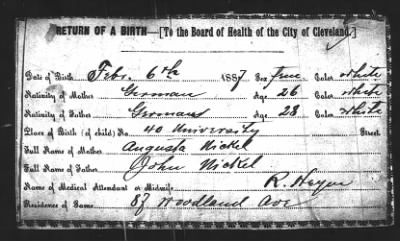 RETURN OF A BIRTH—[To the Board of Health of the City of Cleveland.]
Date of Birth Febr. 6th 1887 Sex Color White
Nativity of Mother German Age 26 Color White
Nativity of Father German Age 28 Color White
Place of Birth (of child) No 40 University Street
Full Name of Mother Augusta Nickel
Full Name of Father John Nickel
Name of Medical Attendant or Midwife R.
Residence of Same 87 Woodland Ave